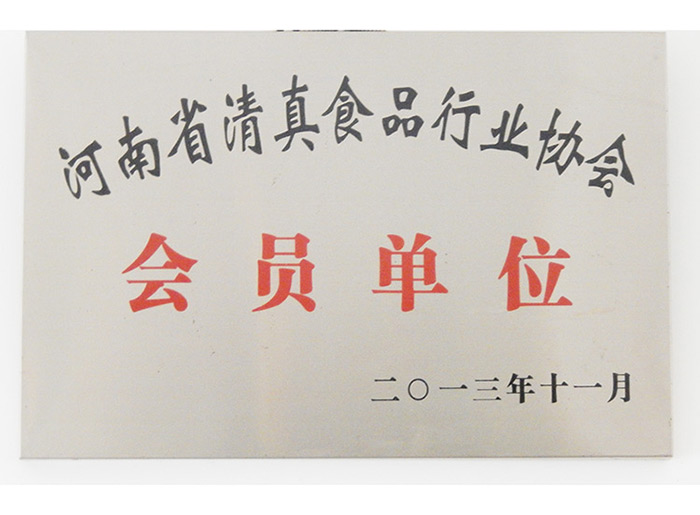 河南省清真食品行业协会
会员单位
二〇一三年十一月